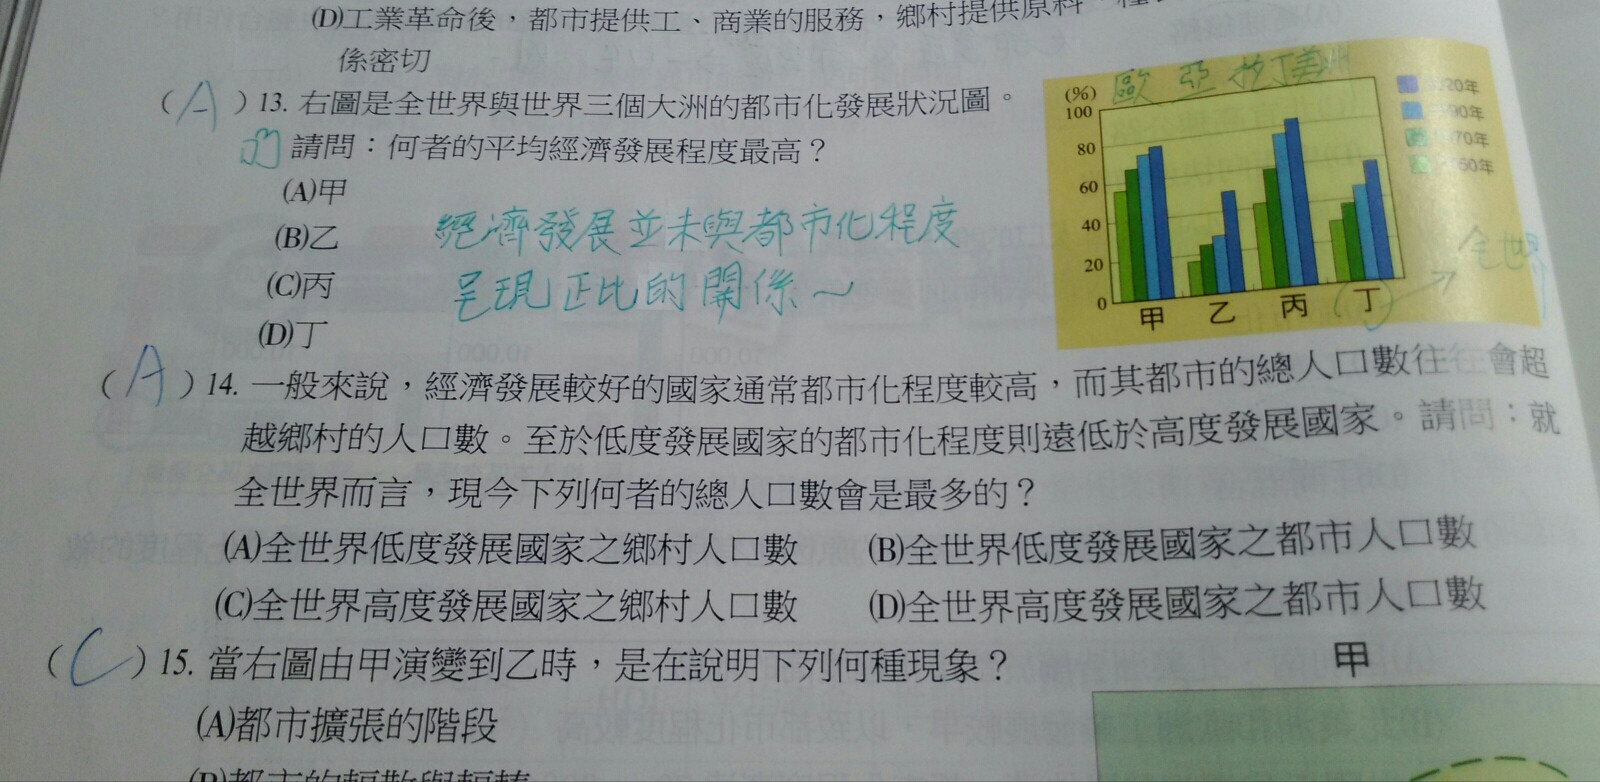 (D)工業革命後，都市提供工、商業的服務，鄉村提供原料
係密切
(A)13. 右圖是全世界與世界三個大洲的都市化發展狀況圖。
請問：何者的平均經濟發展程度最高？
(A)甲
(B)乙
(C)丙
(D)丁
經濟發展並未與都市化程度
呈現正比的關係～
歐 亞 拉丁美洲
(%)
100
80
60
40
20
0
甲 乙 丙 丁
20年
90年
70年
50年
全世界
(A)14. 一般來說，經濟發展較好的國家通常都市化程度較高，而其都市的總人口數往往會超
越鄉村的人口數。至於低度發展國家的都市化程度則遠低於高度發展國家。請問：就
全世界而言，現今下列何者的總人口數會是最多的？
(A)全世界低度發展國家之鄉村人口數 (B)全世界低度發展國家之都市人口數
(C)全世界高度發展國家之鄉村人口數 (D)全世界高度發展國家之都市人口數
(C)15. 當右圖由甲演變到乙時，是在說明下列何種現象？
甲
(A)都市擴張的階段